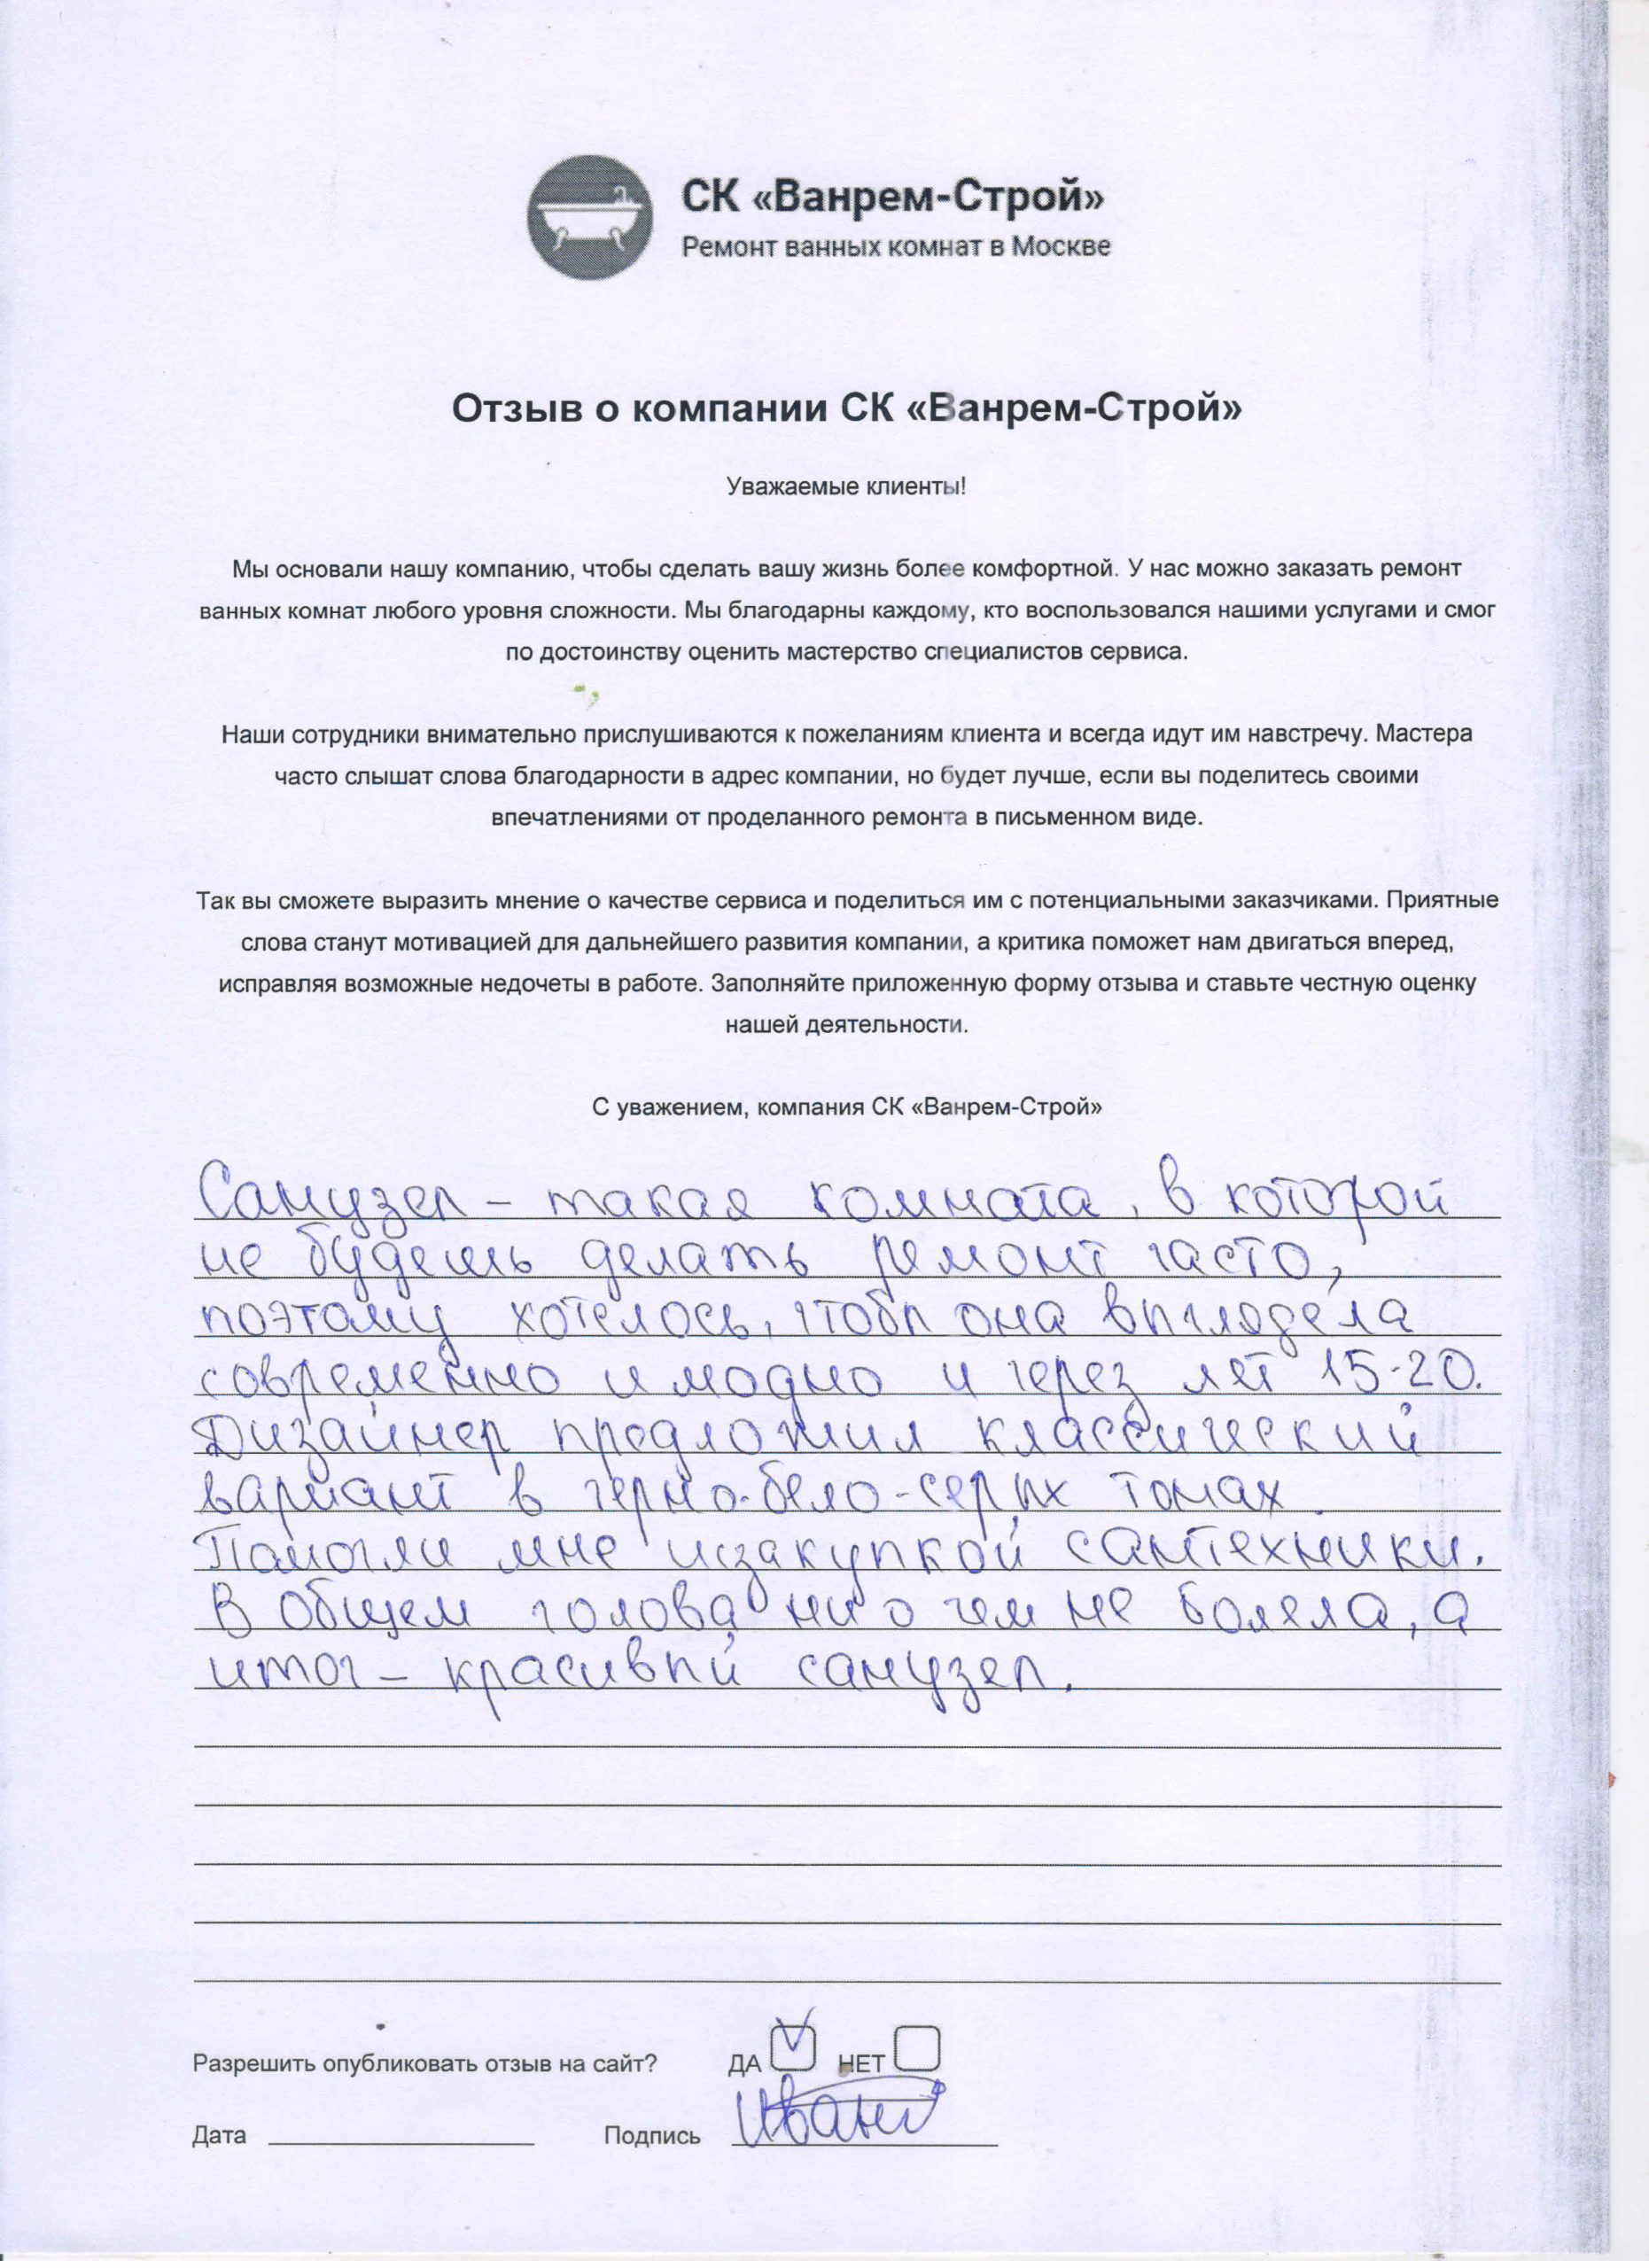 СК «Ванрем-Строй»
Ремонт ванных комнат в Москве
Отзыв о компании СК «Ванрем-Строй»
Уважаемые клиенты!
Мы основали нашу компанию, чтобы сделать вашу жизнь более комфортной. У нас можно заказать ремонт
ванных комнат любого уровня сложности. Мы благодарны каждому, кто воспользовался нашими услугами и смог
по достоинству оценить мастерство специалистов сервиса.
Наши сотрудники внимательно прислушиваются к пожеланиям клиента и всегда идут им навстречу. Мастера
часто слышат слова благодарности в адрес компании, но будет лучше, если вы поделитесь своими
впечатлениями от проделанного ремонта в письменном виде.
Так вы сможете выразить мнение о качестве сервиса и поделиться им с потенциальными заказчиками. Приятные
слова станут мотивацией для дальнейшего развития компании, а критика поможет нам двигаться вперед,
исправляя возможные недочеты в работе. Заполняйте приложенную форму отзыва и ставьте честную оценку
нашей деятельности.
С уважением, компания СК «Ванрем-Строй»
Санузел - такая комната, в которой
не будешь делать ремонт часто,
поэтому хотелось, чтобы она выглядела
современно и модно и через лет 15-20.
Дизайнер предложил классический
вариант в черно-бело-серых тонах.
Помогли мне и с закупкой сантехники.
В общем голова ни о чем не болела, а
итог - красивый санузел.
Разрешить опубликовать отзыв на сайт? ДА НЕТ
Дата Подпись Иван